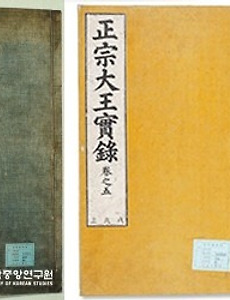 正宗大王實錄
卷之五
중앙연구원
Y OF KOREAN STUDIES